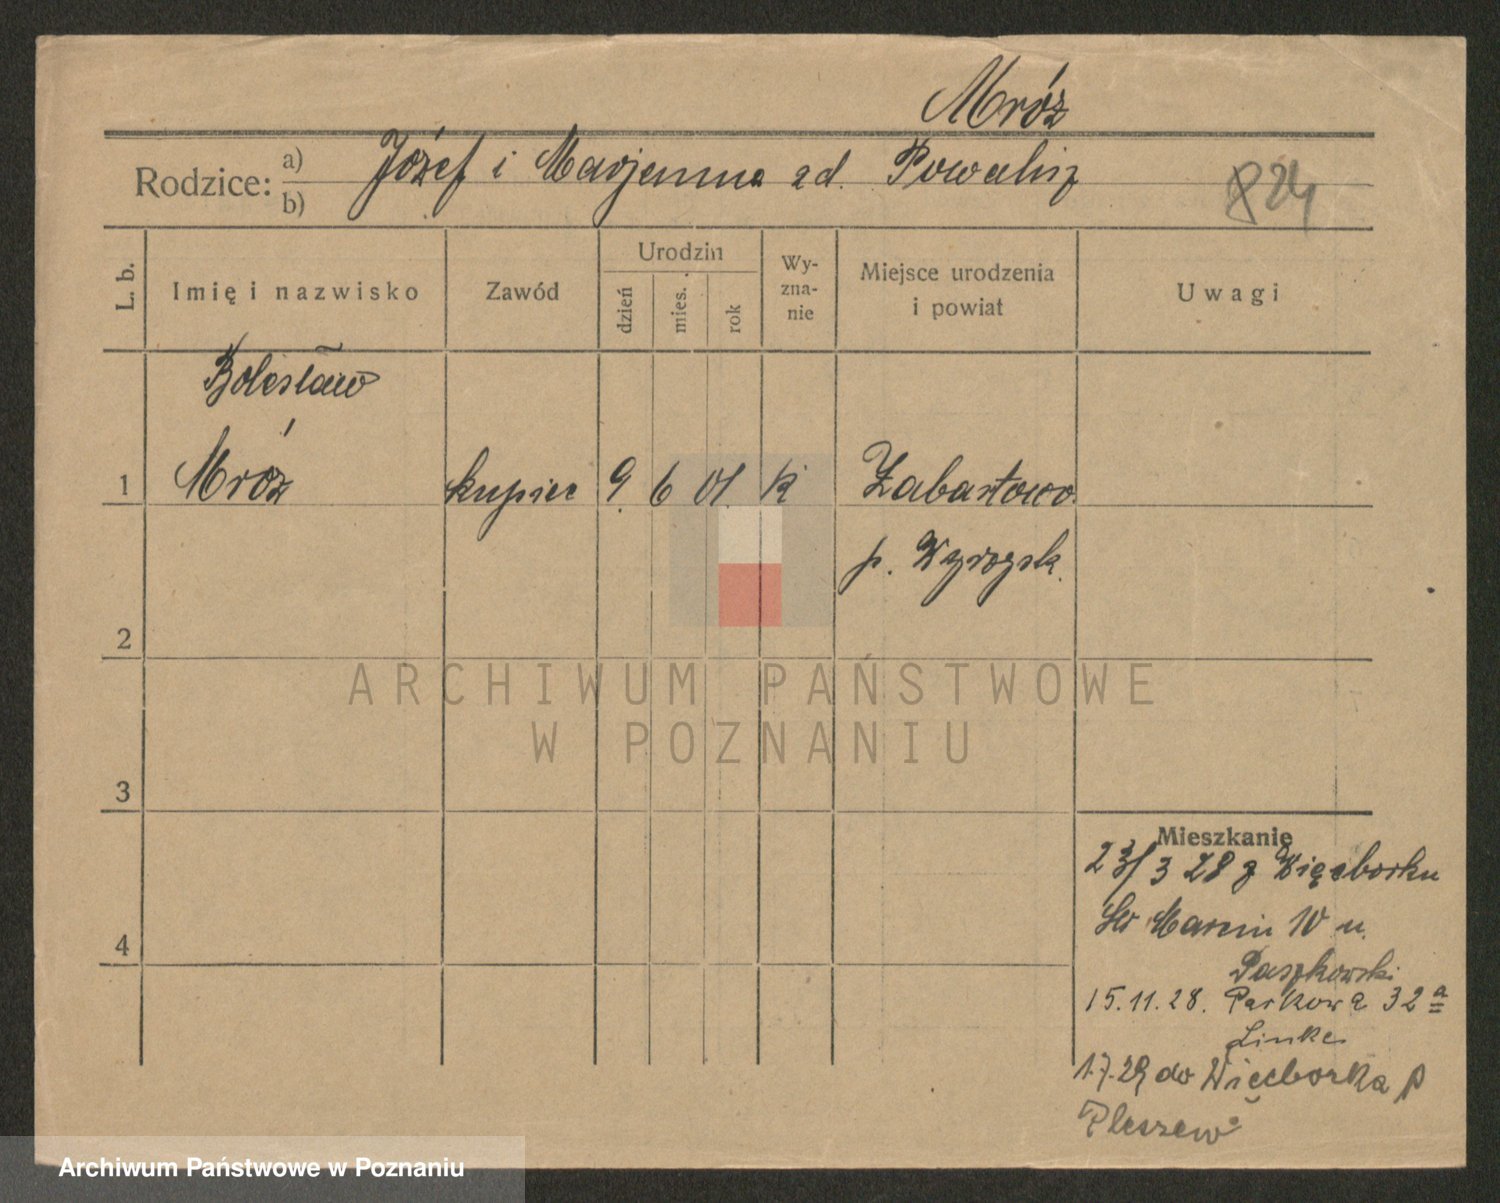 Mróz
Rodzice: a) Józef i Marjanna zd. Powalisz
b)
824
L. b.
Imię i nazwisko
Zawód
Urodzin
dzień
mies.
rok
Wy-
zna-
nie
Miejsce urodzenia
i powiat
Uwagi
Bolesław
1 Mróz kupiec 9. 6 01. k Żabartowo
p. Wyrzysk.
2
3
4
Mieszkanie
23/3 28 z Więcborku
Św Marcin 10 u.
Paszkowski
15.11.28. Parkowa 32a
Linke
1.7.29 do Więcborka p
Pleszew
ARCHIWUM PAŃSTWOWE
W POZNANIU
Archiwum Państwowe w Poznaniu